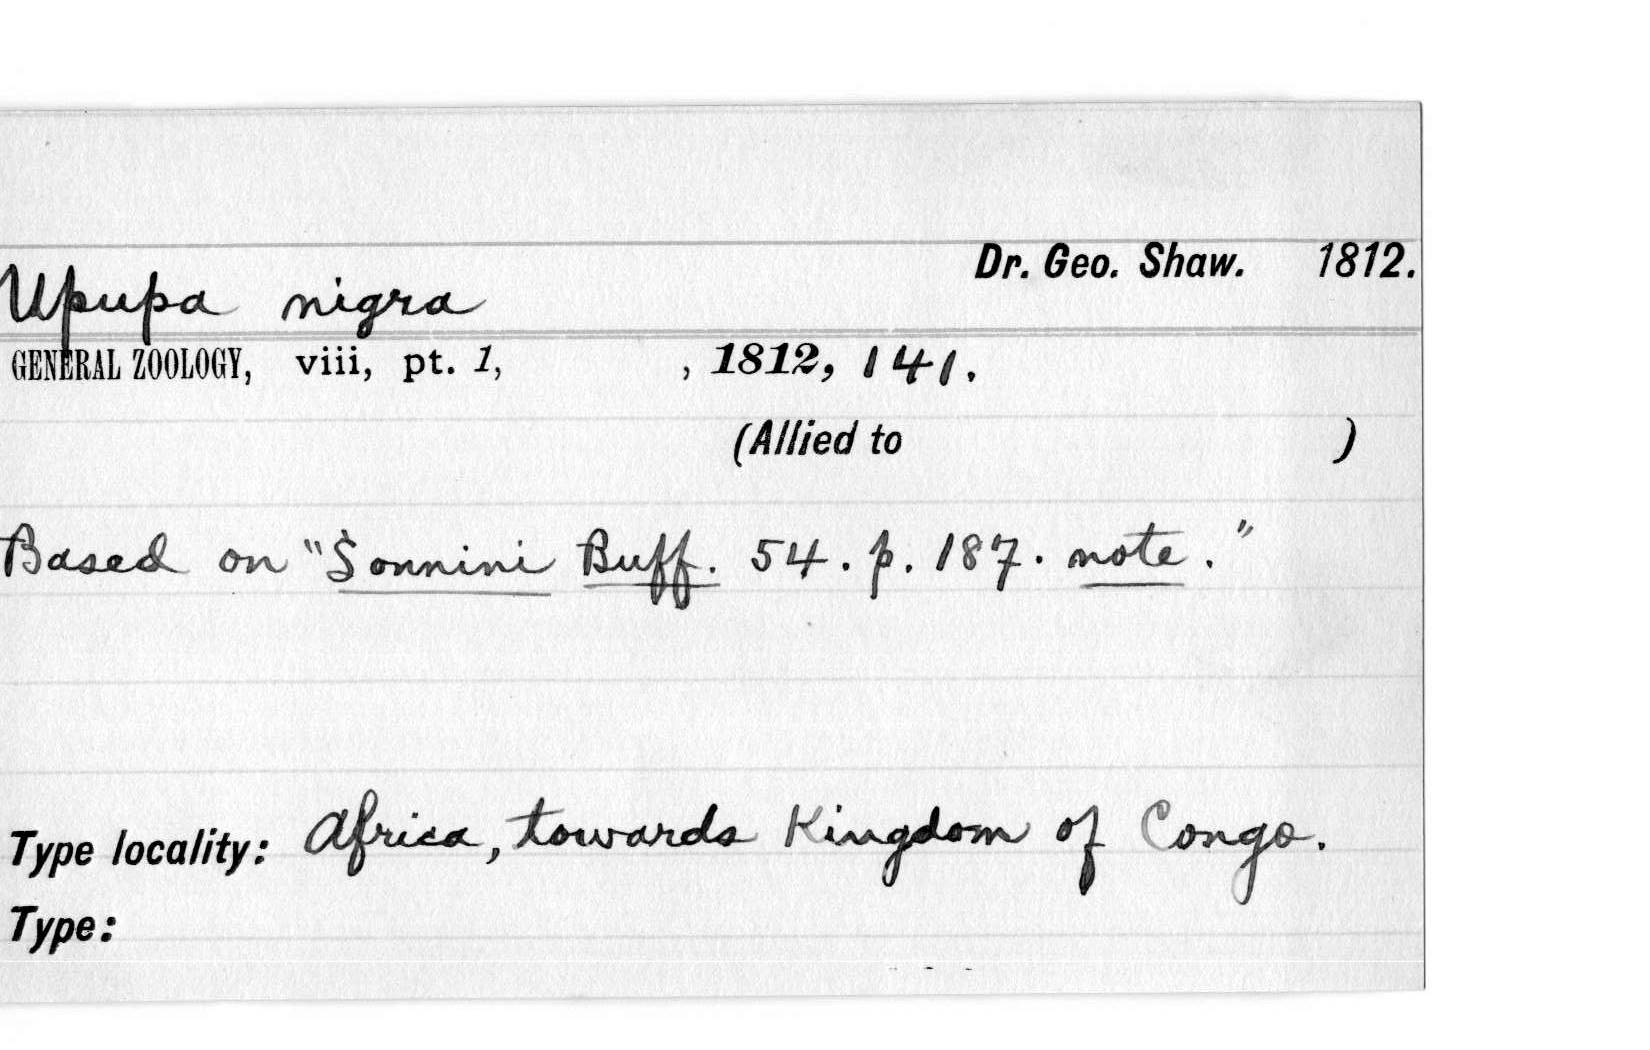 Dr. Geo. Shaw. 1812.
Upupa nigra
GENERAL ZOOLOGY, viii, pt. 1, , 1812, 141.
(Allied to )
Based on "Sonnini Buff. 54. p. 187. note."
Type locality: Africa, towards Kingdom of Congo.
Type: